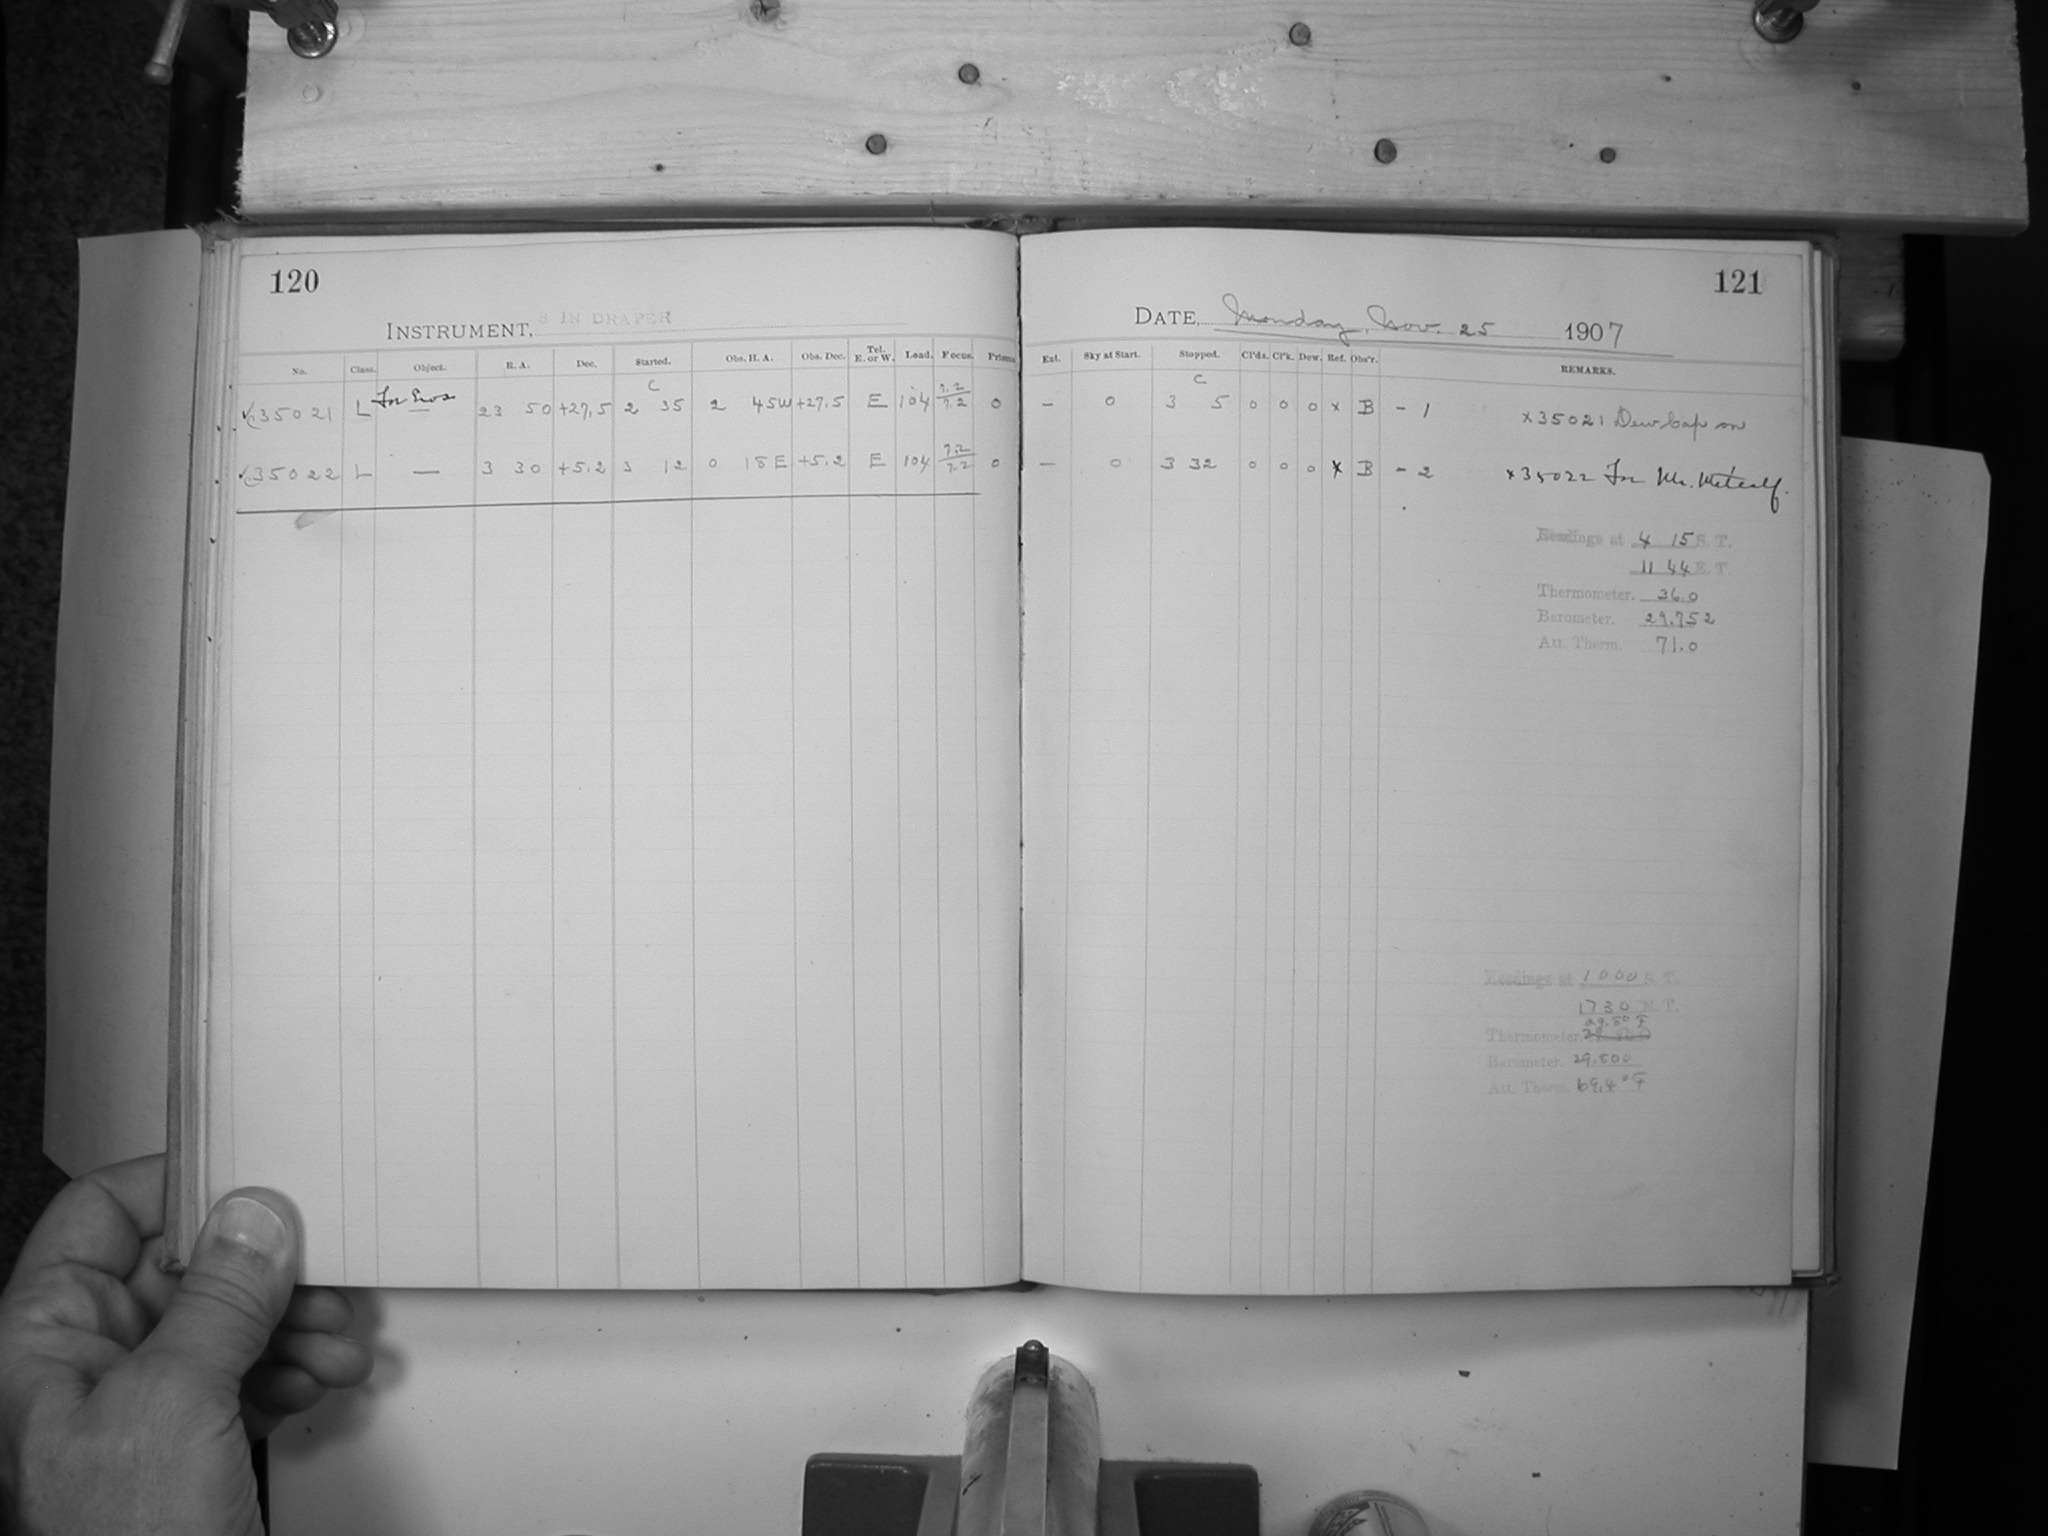 120
INSTRUMENT, 8 IN DRAPER
No. Class. Object. R. A. Dec. Started. Obs. H. A. Obs. Dec. Tel. E. or W. Lead. Focus. Prisms
C
35021 L For Eros — 23 50 +27.5 2 35 2 45W +27.5 E 104 7.2 7.2 0
35022 L — 3 30 +5.2 3 12 0 18E +5.2 E 104 7.2 7.2 0
121
DATE, Monday, Nov. 25 1907
Ext. Sky at Start. Stopped. Cl'ds. Cl'k. Dew. Ref. Obs'r. REMARKS.
C
– 0 3 5 0 0 0 x B – 1 x35021 Dew Cap on
– 0 3 32 0 0 0 x B – 2 x35022 For Mr. Metcalf.
Readings at 4 15 S. T.
11 44 E. T.
Thermometer. 36.0
Barometer. 29.752
Att. Therm. 71.0
Readings at 10 00 S. T.
17 30 E. T.
29.5° F
Thermometer.
Barometer. 29.800
Att. Therm. 69.4° F